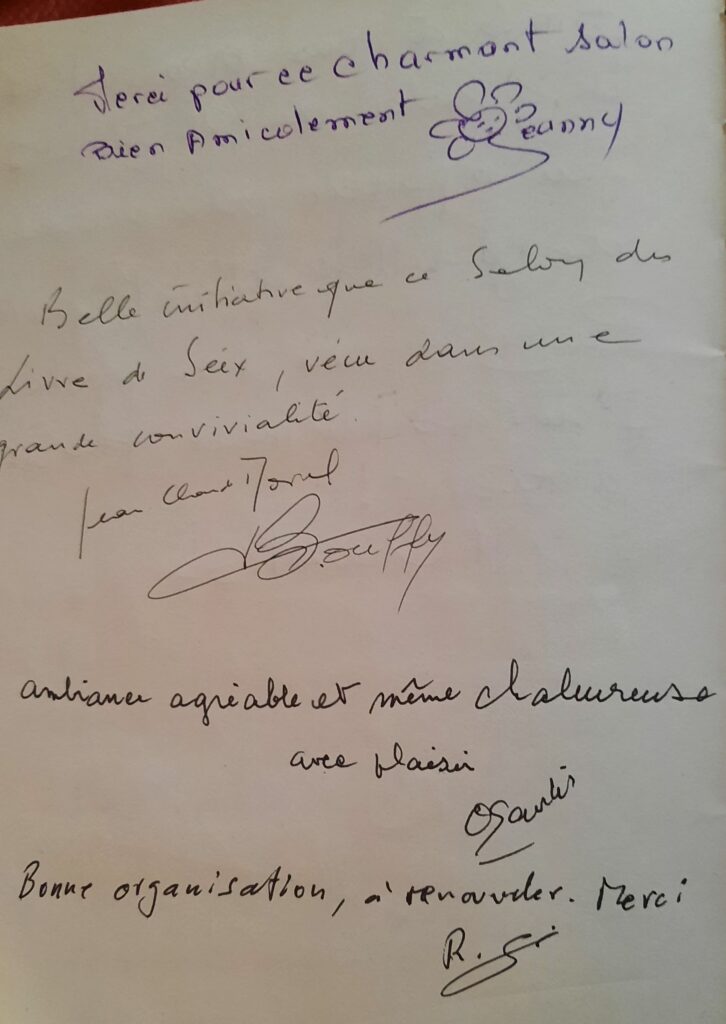 Merci pour ce charmant salon
Bien Amicalement Jeanny
Belle initiative que ce Salon du
Livre de Seix, vécu dans une
grande convivialité.
Jean Claude
ambiance agréable et même chaleureuse
avec plaisir
Bonne organisation, à renouveler. Merci
R.